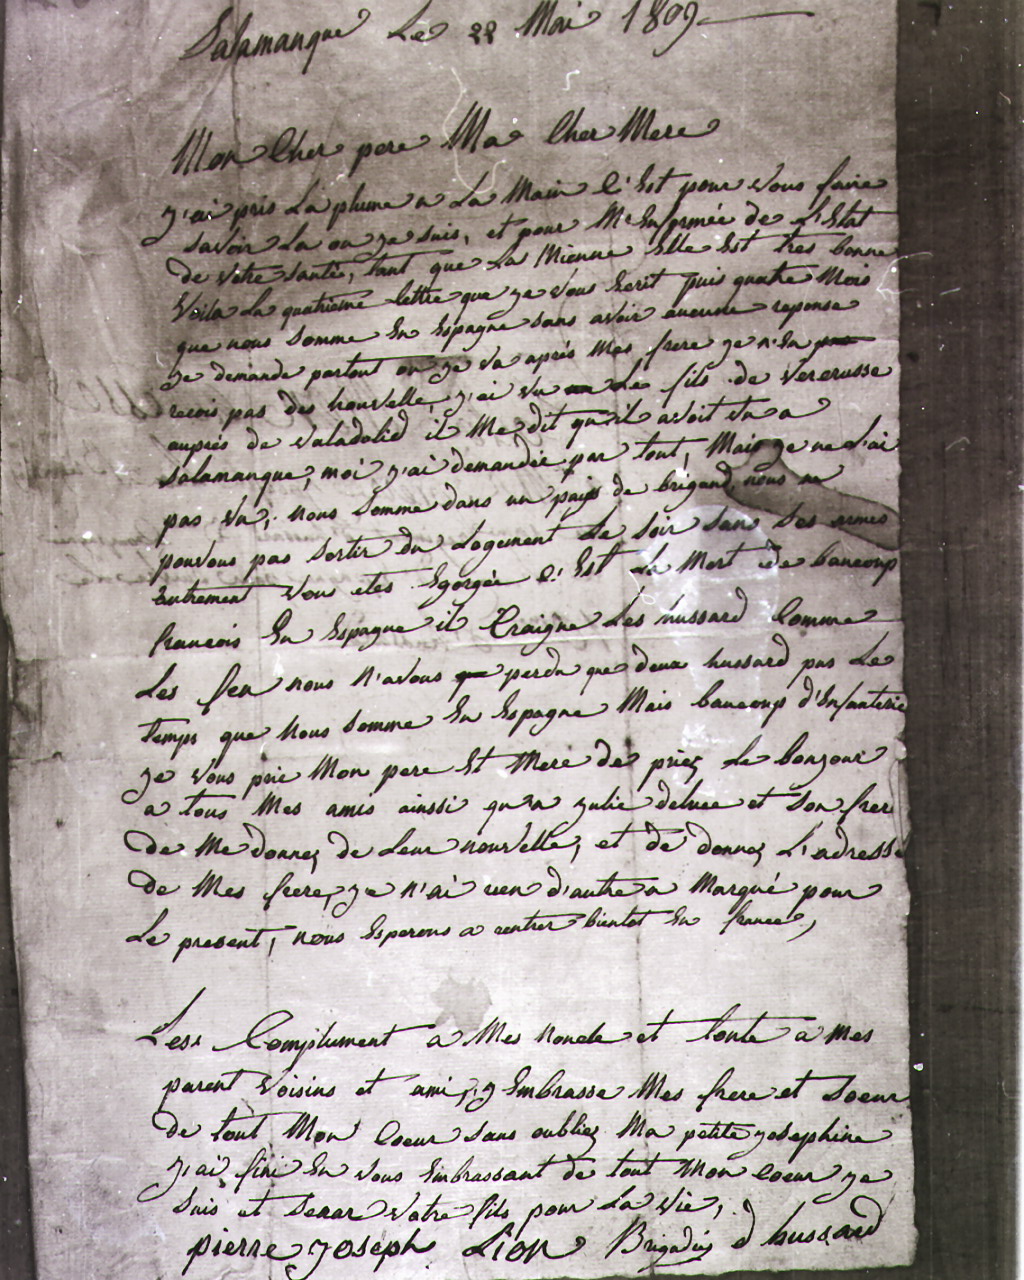 Salamanque Le 22 Mai 1809
Mon Cher pere Ma Cher Mere
j'ai pris La plume a La Main C'Est pour vous faire
savoir La ou je suis, et pour M'Enformée de L'Etat
de votre santée, tant que La Mienne Elle Est tres bonne
Voila La quatrieme lettre que je vous Ecrit puis quatre Mois
que nous somme En Espagne sans avoir aucune reponse
je demande partout ou je va aprés Mes frere je n'En
recois pas des nouvelle, j'ai vu Le fils de Vererusse
auprés de Valadolid il Me dit qu'il avoit vu a
Salamanque, moi j'ai demandée par tout, Mais je ne L'ai
pas vu, nous somme dans un pays de brigand nous ne
pouvons pas sortir du Logement Le soir sans Ses armes
autrement vous etes Egorgée C'Est La Mort de baucoup
francois En Espagne il Craigne Les hussard Comme
Les feu nous N'avons perdu que deux hussard pas Le
temps que Nous somme En Espagne Mais baucoup d'Infanterie
je vous prie Mon pere Et Mere de priez Le bonjour
a tous Mes amis ainssi qu'a julie deluee et Son frer
de Me donnez de Leur nouvelle, et de donnez L'adresse
de Mes frere, je n'ai rien d'autre a Marqué pour
Le present, nous Esperons a rentrer bientot En france,
Less Complument a Mes noncle et tonte a mes
parent voisins et ami, j Embrasse Mes frere et Soeur
de tout Mon Coeur sans oubliez Ma petite josephine
j'ai fini En vous Embrassant de tout Mon Coeur je
suis et serar votre fils pour La vie,
pierre joseph Lion Brigadié d hussard